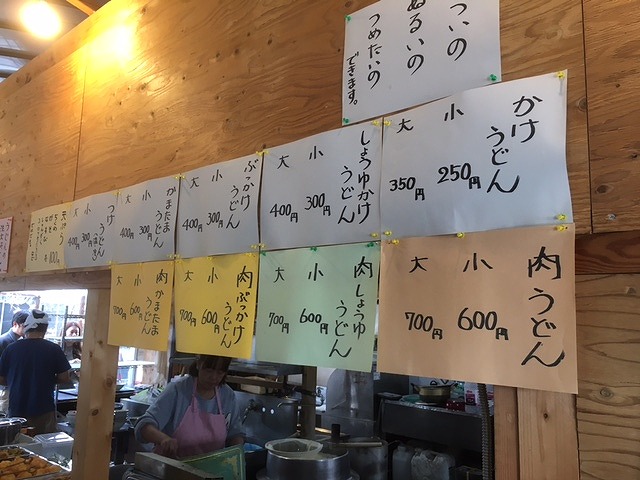 ついの
ぬるいの
つめたいの
できます。
かけ
うどん
小 250円
大 350円
しょうゆかけ
うどん
小 300円
大 400円
ぶっかけ
うどん
小 300円
大 400円
かまたま
うどん
小 300円
大 400円
つけ
うどん
小 300円
大 400円
天ぷら
肉うどん
小 600円
大 700円
肉しょうゆ
うどん
小 600円
大 700円
肉ぶっかけ
うどん
小 600円
大 700円
肉かまたま
うどん
小 600円
大 700円